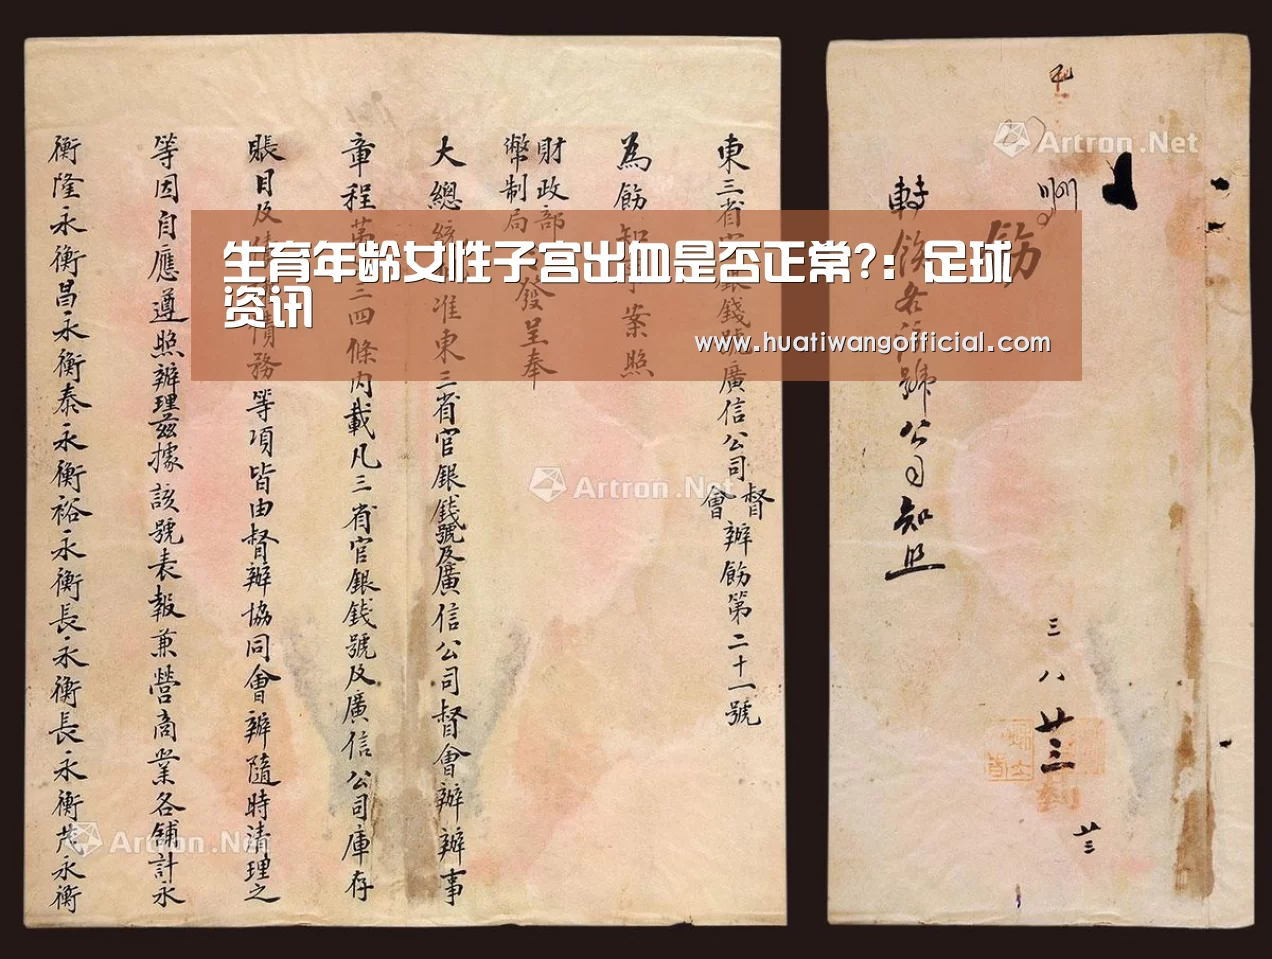 生育年龄女性子宫出血是否正常?：足球
资讯
www.huatiwangofficial.com
Artron.Net
轉飭各
號公司知照
飭
三 八 廿三
廿三
東三省官銀錢號廣信公司督會辦飭第二十一號
為飭知事案照
財政部
幣制局
發呈奉
大總統
准東三省官銀錢號及廣信公司督會辦辦事
章程第三四條內載凡三省官銀錢號及廣信公司庫存
賬目及
債務等項皆由督辦協同會辦隨時清理之
等因自應遵照辦理茲據該號表報兼營商業各鋪計永
衡隆永衡昌永衡泰永衡裕永衡長永衡長永衡茂永衡
Artron.Net
Artron.Net